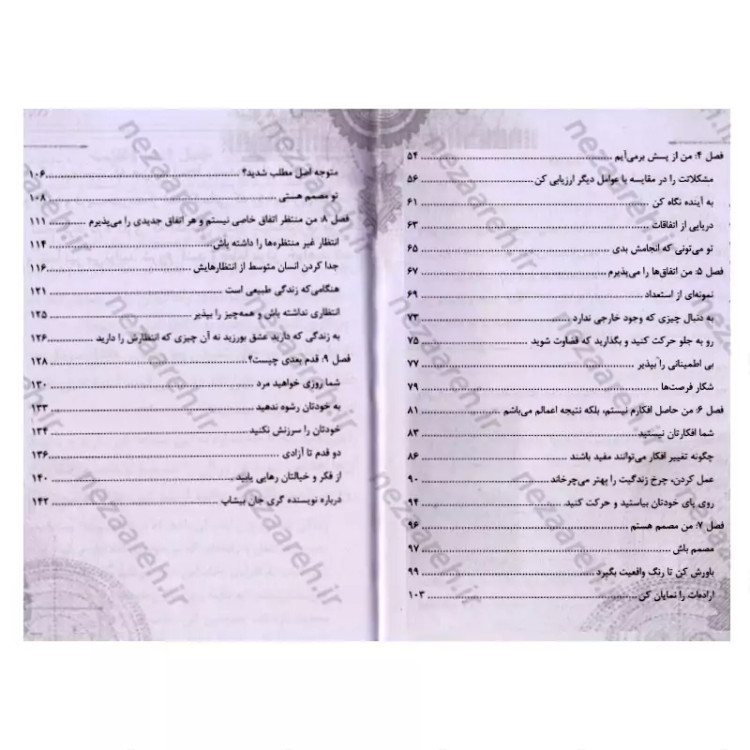 فصل ۴: من از پسش برمی‌آیم ............ ۵۴
مشکلاتت را در مقایسه با عوامل دیگر ارزیابی کن ............ ۵۶
به آینده نگاه کن ............ ۶۱
دریایی از اتفاقات ............ ۶۳
تو می‌تونی که انجامش بدی ............ ۶۵
فصل ۵: من اتفاق‌ها را می‌پذیرم ............ ۶۷
نمونه‌ای از استعداد ............ ۶۹
به دنبال چیزی که وجود خارجی ندارد ............ ۷۳
رو به جلو حرکت کنید و بگذارید که قضاوت شوید ............ ۷۵
بی اطمینانی را بپذیر ............ ۷۷
شکار فرصت‌ها ............ ۷۹
فصل ۶: من حاصل افکارم نیستم، بلکه نتیجه اعمالم می‌باشم ............ ۸۱
شما افکارتان نیستید ............ ۸۳
چگونه تغییر افکار می‌توانند مفید باشند ............ ۸۶
عمل کردن، چرخ زندگیت را بهتر می‌چرخاند ............ ۹۰
روی پای خودتان بیاستید و حرکت کنید ............ ۹۴
فصل ۷: من مصمم هستم ............ ۹۶
مصمم باش ............ ۹۷
باورش کن تا رنگ واقعیت بگیرد ............ ۹۹
اراده‌ات را نمایان کن ............ ۱۰۳
متوجه اصل مطلب شدید؟ ............ ۱۰۶
تو مصمم هستی ............ ۱۰۸
فصل ۸: من منتظر اتفاق خاصی نیستم و هر اتفاق جدیدی را می‌پذیرم ............ ۱۱۱
انتظار غیر منتظره‌ها را داشته باش ............ ۱۱۴
جدا کردن انسان متوسط از انتظارهایش ............ ۱۱۶
هنگامی‌که زندگی طبیعی است ............ ۱۲۱
انتظاری نداشته باش و همه‌چیز را بپذیر ............ ۱۲۵
به زندگی که دارید عشق بورزید نه آن چیزی که انتظارش را دارید ............ ۱۲۶
فصل ۹: قدم بعدی چیست؟ ............ ۱۲۸
شما روزی خواهید مرد ............ ۱۳۰
به خودتان رشوه ندهید ............ ۱۳۳
خودتان را سرزنش نکنید ............ ۱۳۴
دو قدم تا آزادی ............ ۱۳۶
از فکر و خیالتان رهایی یابید ............ ۱۴۰
درباره نویسنده گری جان بیشاپ ............ ۱۴۲
nezaareh.ir
nezaareh.ir
nezaareh.ir
nezaareh.ir
nezaareh.ir
nezaareh.ir